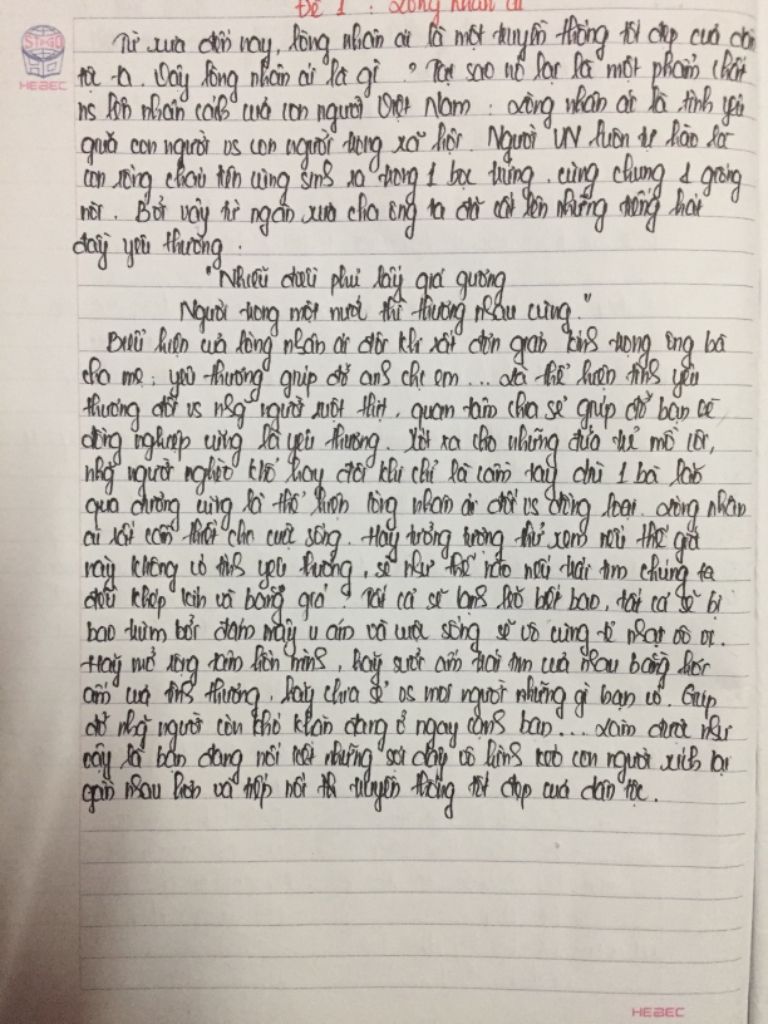 Đề 1 : Lòng nhân ái
STAGO
HEBEC
Từ xưa đến nay, lòng nhân ái là một truyền thống tốt đẹp của dân
tộc ta. Vậy lòng nhân ái là gì ? Tại sao nó lại là một phẩm chất
ns lên nhân cách của con người Việt Nam : Lòng nhân ái là tình yêu
giữa con người vs con người trong xã hội. Người VN luôn tự hào là
con rồng cháu tiên cùng sinh ra trong 1 bọc trứng, cùng chung 1 giống
nòi. Bởi vậy từ ngàn xưa cha ông ta đã cất lên những tiếng hát
đầy yêu thương.
"Nhiễu điều phủ lấy giá gương
Người trong một nước thì thương nhau cùng."
Biểu hiện của lòng nhân ái đôi khi rất đơn giản kính trọng ông bà
cha mẹ ; yêu thương giúp đỡ anh chị em... là thể hiện tình yêu
thương đối vs nhg người ruột thịt, quan tâm chia sẻ giúp đỡ bạn bè
đồng nghiệp cũng là yêu thương. Xót xa cho những đứa trẻ mồ côi,
nhg người nghèo khổ hay đôi khi chỉ là cầm tay dìu 1 bà lão
qua đường cũng là thể hiện lòng nhân ái đối vs đồng loại. Lòng nhân
ái rất cần thiết cho cuộc sống. Hãy tưởng tượng thử xem nếu thế giới
này không có tình yêu thương, sẽ như thế nào nếu trái tim chúng ta
đều khép kín và băng giá ? Tất cả sẽ lạnh lẽo biết bao, tất cả sẽ bị
bao trùm bởi đám mây u ám và cuộc sống sẽ vô cùng tẻ nhạt vô vị.
Hãy mở rộng tâm hồn mình, hãy sưởi ấm trái tim của nhau bằng hơi
ấm của tình thương, hãy chia sẻ vs mọi người những gì bạn có. Giúp
đỡ nhg người còn khó khăn đang ở ngay cạnh bạn... Làm được như
vậy là bạn đang nối kết những sợi dây vô hình kéo con người xích lại
gần nhau hơn và tiếp nối truyền thống tốt đẹp của dân tộc.
HEBEC